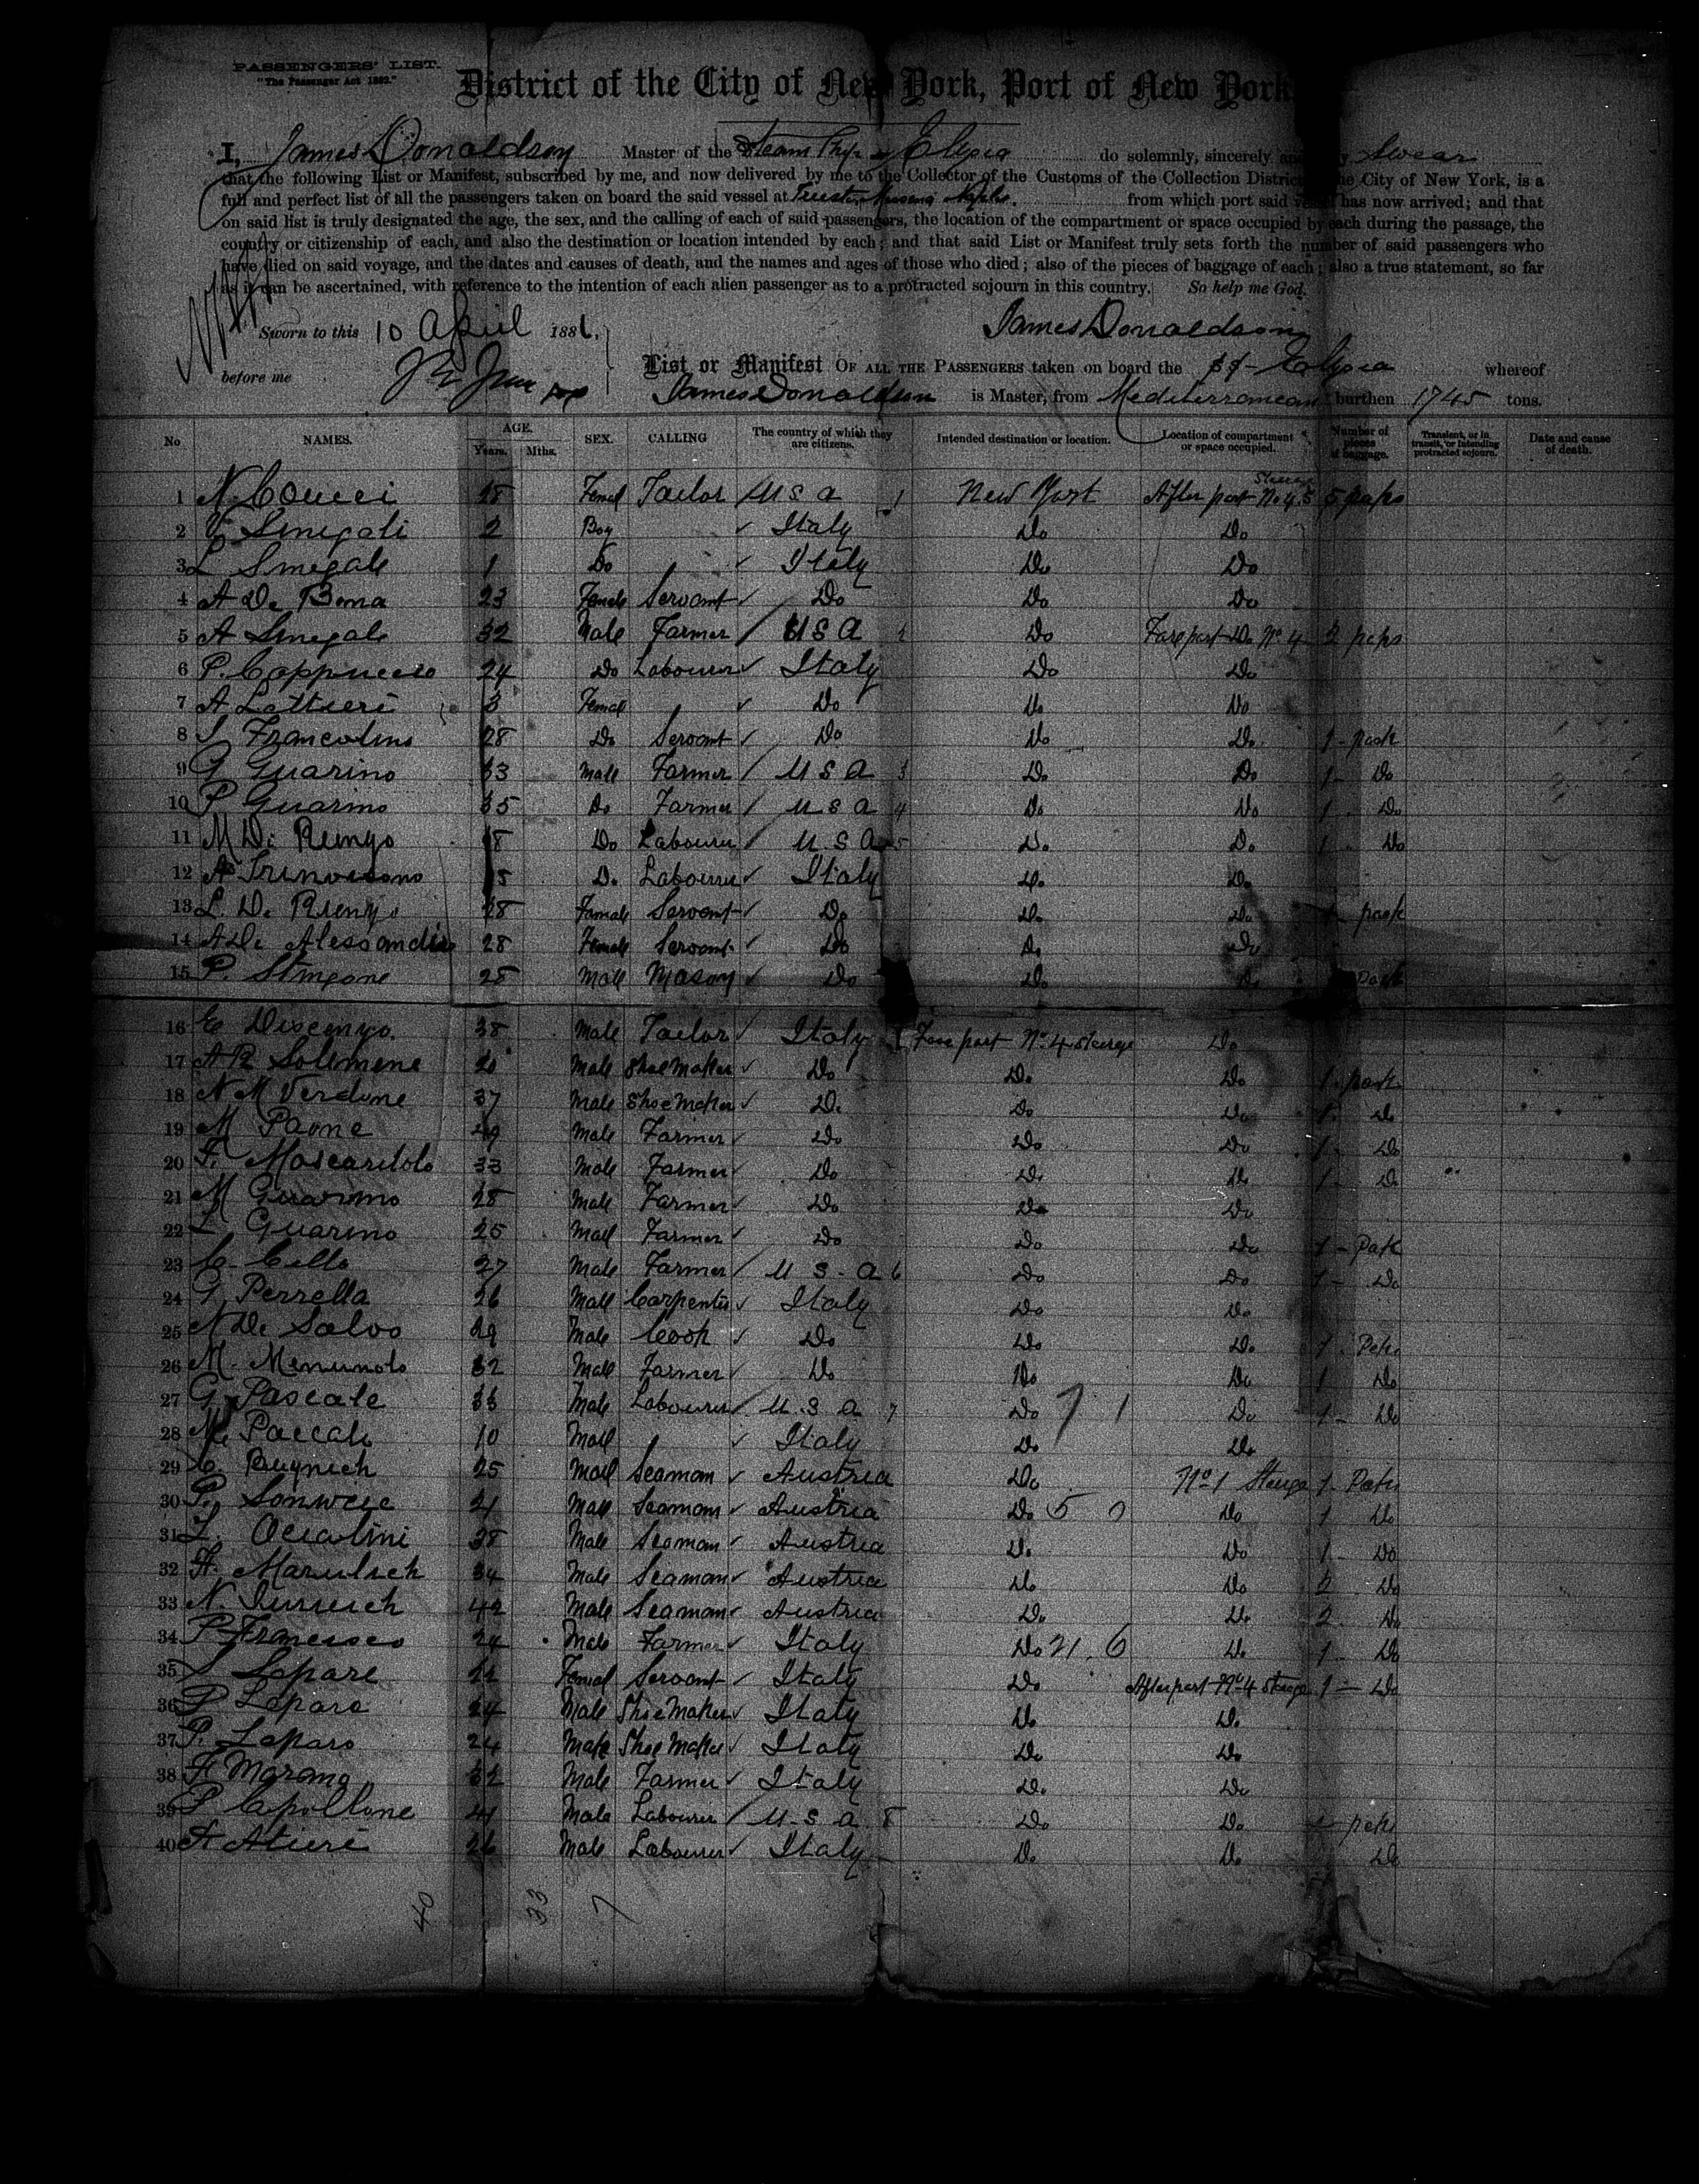 PASSENGERS' LIST.
"The Passenger Act 1882."
District of the City of New York, Port of New York
I, James Donaldson Master of the Steam Ship Elysia do solemnly, sincerely and Swear
that the following List or Manifest, subscribed by me, and now delivered by me to the Collector of the Customs of the Collection District the City of New York, is a
full and perfect list of all the passengers taken on board the said vessel at Trieste, Messina Naples. from which port said vessel has now arrived; and that
on said list is truly designated the age, the sex, and the calling of each of said passengers, the location of the compartment or space occupied by each during the passage, the
country or citizenship of each, and also the destination or location intended by each; and that said List or Manifest truly sets forth the number of said passengers who
have died on said voyage, and the dates and causes of death, and the names and ages of those who died; also of the pieces of baggage of each; also a true statement, so far
as it can be ascertained, with reference to the intention of each alien passenger as to a protracted sojourn in this country. So help me God.
Sworn to this 10 April 1886. James Donaldson
before me
List or Manifest OF ALL THE PASSENGERS taken on board the SS- Elysia whereof
James Donaldson is Master, from Mediterranean burthen 1745 tons.
No NAMES. AGE. Years. Mths. SEX. CALLING The country of which they are citizens. Intended destination or location. Location of compartment or space occupied. Number of pieces of baggage. Transient, or in transit, or intending protracted sojourn. Date and cause of death.
1 N. Coucci Femal Tailor U S A 1 New York After part No 4 S
2 V Sinegali 2 Boy Italy Do Do
3 L Smegale 1 Do Italy Do Do
4 A De Bona 23 Female Servant Do Do Do
5 A Smegale 32 Male Farmer U S A 2 Do Fore part Do No. 4 2 pcps
6 P. Cappuccio 24 Do Labourer Italy Do Do
7 A Lattieri 3 Femal Do Do Do
8 S Francolino 28 Do Servant Do Do Do 1 - pack
9 G Guarino 33 Male Farmer U S A 3 Do Do 1 - Do
10 P Guarino 35 Do Farmer U S A 4 Do Do 1 Do
11 M Di Rienzo 18 Do Labourer U. S A 5 Do Do 1 Do
12 15 Do Labourer Italy Do Do
13 L. Di Rienzo 28 Female Servant Do Do Do 1 pack
14 A De Alessandis 28 Female Servant Do Do Do
15 P. Stingone 25 Male Mason Do Do Do Pack
16 E Discenzo. 38 Male Tailor Italy Fore part No. 4 steerge Do
17 A R Solimene Male Shoemaker Do Do Do 1 pack
18 N M Verdone 37 Male Shoemaker Do Do Do 1 Do
19 M Paone 49 Male Farmer Do Do Do 1 Do
20 F. Moscaritolo 33 Male Farmer Do Do Do 1 Do
21 M Guarino 28 Male Farmer Do Do Do
22 L Guarino 25 Male Farmer Do Do Do 1 - Pack
23 C. Cello 27 Male Farmer U S. A 6 Do Do 1 - Do
24 G Perrella 26 Male Carpenter Italy Do Do
25 N De Salvo 29 Male Cook Do Do Do 1 Pck
26 M. 32 Male Farmer Do Do Do 1 Do
27 G Pascale 33 Male Labourer U. S A 7 Do 7 1 Do 1 - Do
28 M. Pascale 10 Male Italy Do Do
29 25 Male Seaman Austria Do No 1 Steerge 1 Pack
30 21 Male Seaman Austria Do 5 0 Do 1 Do
31 L. Occolini 38 Male Seaman Austria Do Do 1 - Do
32 A. Marulich 34 Male Seaman Austria Do Do 2 Do
33 N. 42 Male Seaman Austria Do Do 2. Do
34 P Francisco 24 Male Farmer Italy Do 21. 6 Do 1 - Do
35 S Lepare 22 Femal Servant Italy Do After part No 4 steerge 1 - Do
36 P Leparo 24 Male Shoemaker Italy Do Do
37 P. Leparo 24 Male Shoe Maker Italy Do Do
38 F Marano 32 Male Farmer Italy Do Do
39 P Capollone 41 Male Labourer U. S A 8 Do Do 1 pck
40 A Atieri 26 Male Labourer Italy Do Do Do
40 33 7